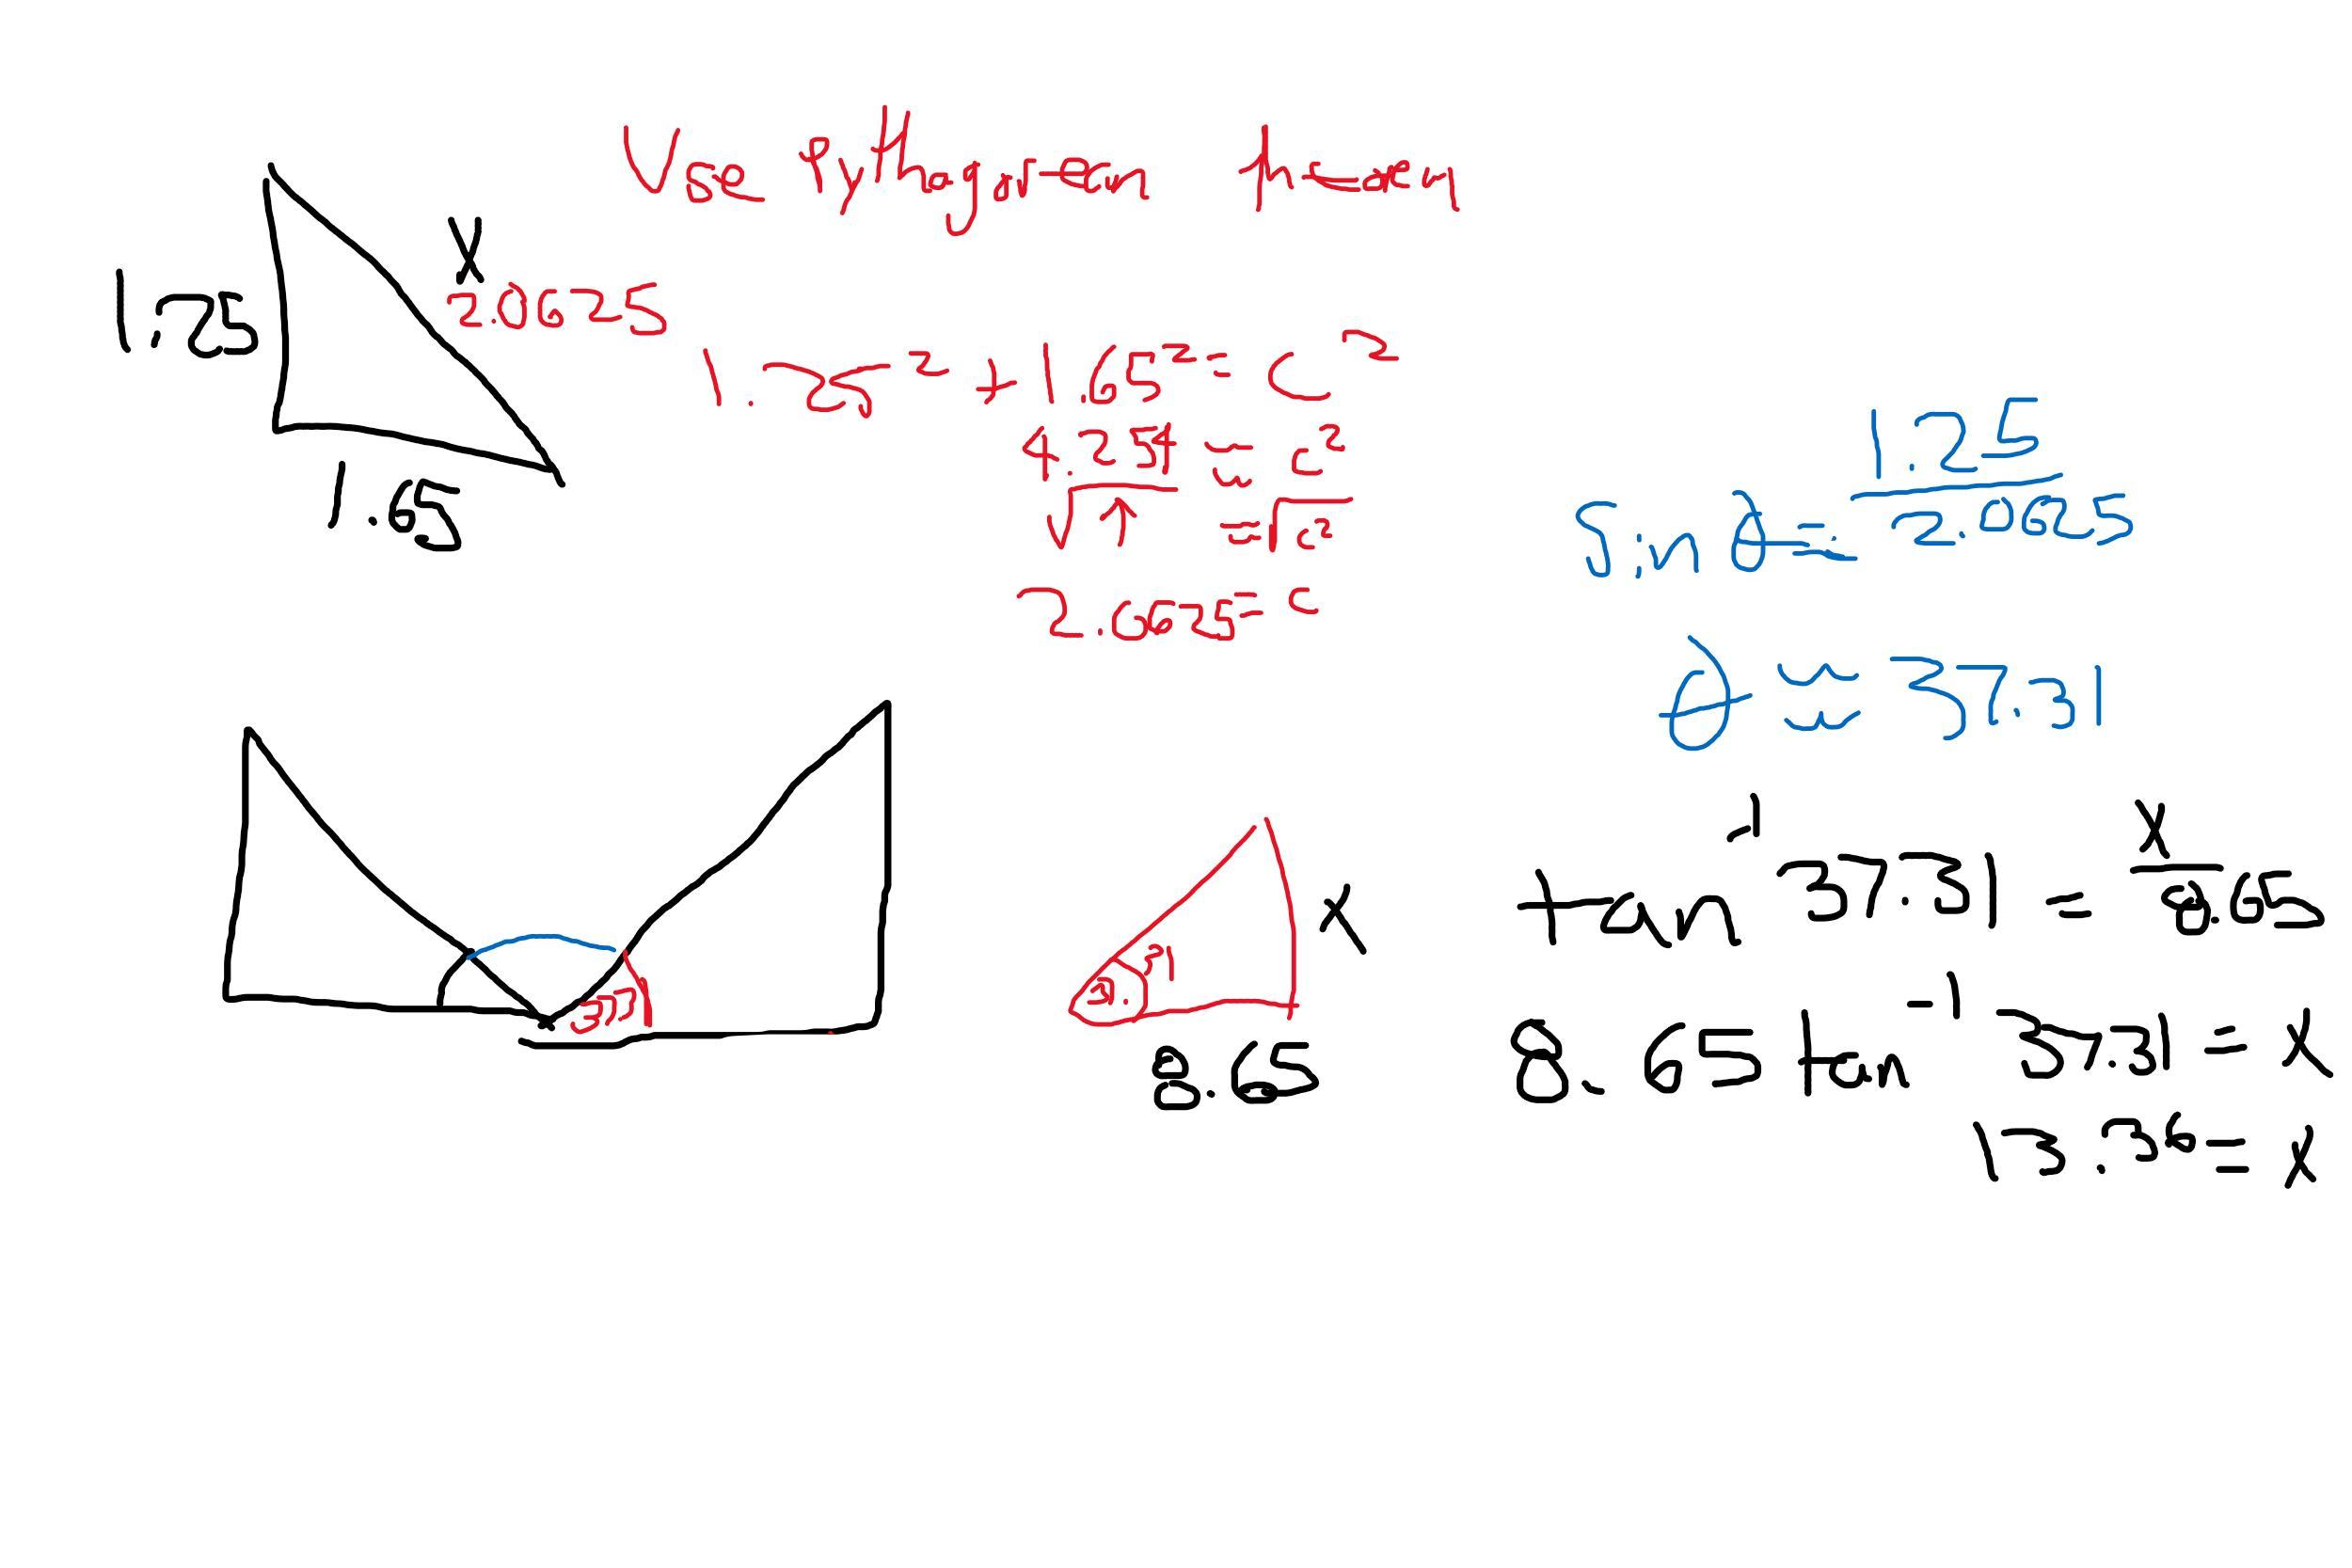 Use Pythagorean theorem
1.25
x
2.0625
1.65
1.25² + 1.65² = c²
4.254 ≈ c²
√↑ = √c²
2.0625 = c
sin θ = 1.25/2.0625
θ ≈ 37.31
37.31
37.31
x
8.65
tan⁻¹ 37.31 = x/8.65
8.65 tan⁻¹ 37.31 = x
13.36 = x